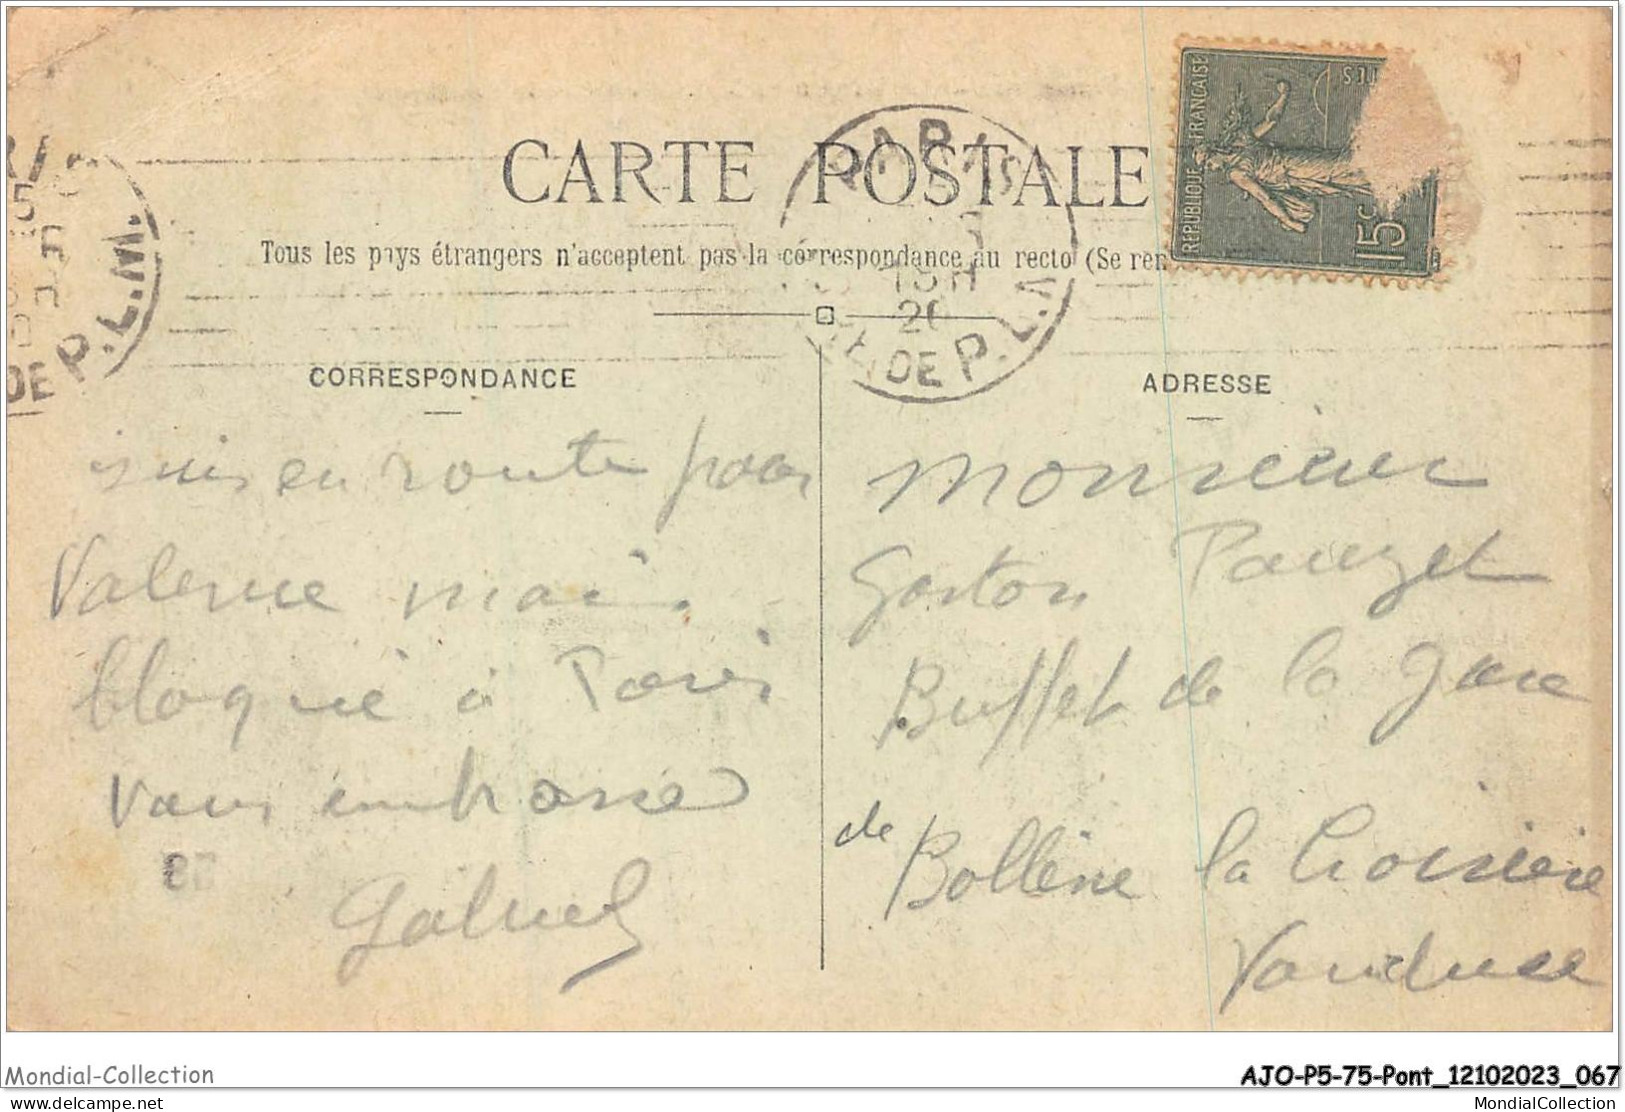 CARTE POSTALE
Tous les pays étrangers n'acceptent pas la correspondance au recto (Se ren
REPUBLIQUE FRANÇAISE
15c
PARIS
15H
20
DE P.L.M.
DE P.L.M.
CORRESPONDANCE
suis en route pour
Valence mais
bloqué à Paris
vous embrasse
Gabriel
ADRESSE
Monsieur
Gaston Pauzet
Buffet de la Gare
de Bollène la Croisière
Vaucluse
Mondial-Collection
AJO-P5-75-Pont_12102023_067
delcampe.net
MondialCollection